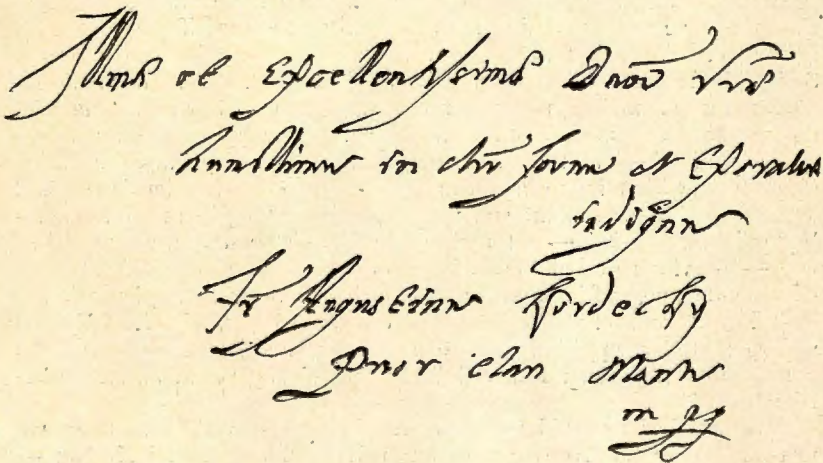 Illmae et Excellentissimae Dnois Vrae
humillimus in Chro servus et Exorator
indignus
Fr Augustinus Kordecky
Prior Clari Montis
m pp